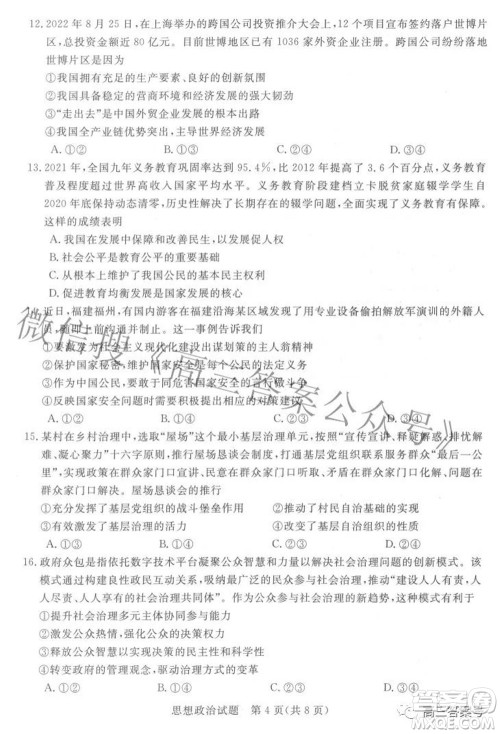 12. 2022 年 8 月 25 日,在上海举办的跨国公司投资推介大会上,12 个项目宣布签约落户世博片
区,总投资金额近 80 亿元。目前世博地区已有 1036 家外资企业注册。跨国公司纷纷落地
世博片区是因为
①我国拥有充足的生产要素、良好的创新氛围
②我国稳定的营商环境和经济发展的潜力
③“走出去”是中国外贸企业发展的根本出路
④我国全产业链生产优势助推世界经济发展
A. ①② B. ①③ C. ②④ D. ③④
13. 2021 年,全国九年义务教育巩固率达到 95.4%,比 2012 年提高了 3.6 个百分点,义务教育
普及程度超过世界高收入国家平均水平。义务教育阶段建档立卡脱贫家庭辍学学生自
2020 年底保持动态清零,历史性解决了长期存在的辍学问题,全面实现了义务教育有保障。
这样的成绩表明
A. 我国在发展中保障和改善民生,以发展促人权
B. 社会公平是教育公平的重要基础
C. 从根本上维护了我国公民的基本民主权利
D. 促进教育均衡发展是国家发展的根本目标
近日,福建福州,有国内游客在福建沿海某区域发现了用专业设备偷拍解放军演训的外籍人
员,随即上前沟通并制止。这一事例告诉我们
①要发扬为社会主义现代化建设出谋划策的主人翁精神
②保护国家秘密,维护国家安全是每个公民的法定义务
③作为中国公民,要敢于同危害国家安全的言行做斗争
④反映国家安全问题时要实事求是
A. ①② B. ①④ C. ②③ D. ③④
15. 某村在乡村治理中,选取“屋场”这个最小基层治理单元,按照“宣传宣讲、释疑解惑、排忧解
难、凝心聚力”十六字原则,制定屋场恳谈会制度,打通基层党组织联系服务群众“最后一公
里”,实现政策在群众家门口宣讲、民意在群众家门口倾听、矛盾在群众家门口化解、问题在
群众家门口解决。屋场恳谈会的推行
①充分发挥了基层党组织的战斗堡垒作用 ②推动了村民自治基础的实现
③有效激发了基层治理的活力 ④有利于基层政府科学民主决策
A. ①② B. ①③ C. ②④ D. ③④
16. 政府众包是指依托数字技术平台凝聚公众智慧和力量以解决社会治理问题的创新模式。该
模式构建起良性政民互动关系,吸纳最广泛的民众参与社会治理,开创了“建设人人有责、人
人尽责、人人享有”的社会治理新格局。作为公众参与社会治理的一种新形式,这种模式有利于
①提升社会治理多元主体协同参与能力
②激发公众热情,增强公众社会责任感
③释放公众智慧以实现社会治理的民主化
④转变政府的管理观念,驱动治理方式的变革
A. ①② B. ①③ C. ②④ D. ③④
思想政治试题 第 4 页(共 8 页)
微信搜《高三答案公众号》
高三答案号